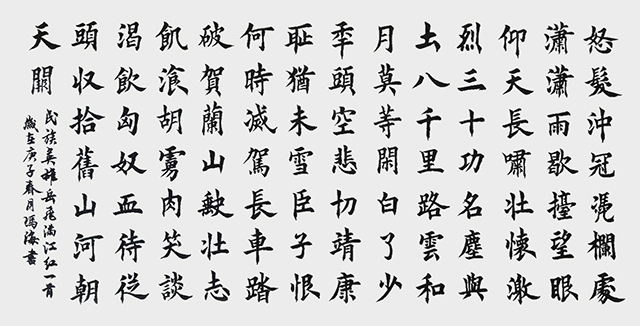 怒髮沖冠凴欄處
瀟瀟雨歇擡望眼
仰天長嘯壯懷激
烈三十功名塵與
土八千里路雲和
月莫等閑白了少
年頭空悲切靖康
耻猶未雪臣子恨
何時滅駕長車踏
破賀蘭山缺壯志
飢飡胡虜肉笑談
渴飲匈奴血待從
頭収拾舊山河朝
天闕
民族英雄岳飛滿江红一首
歲在庚子春月馮海書